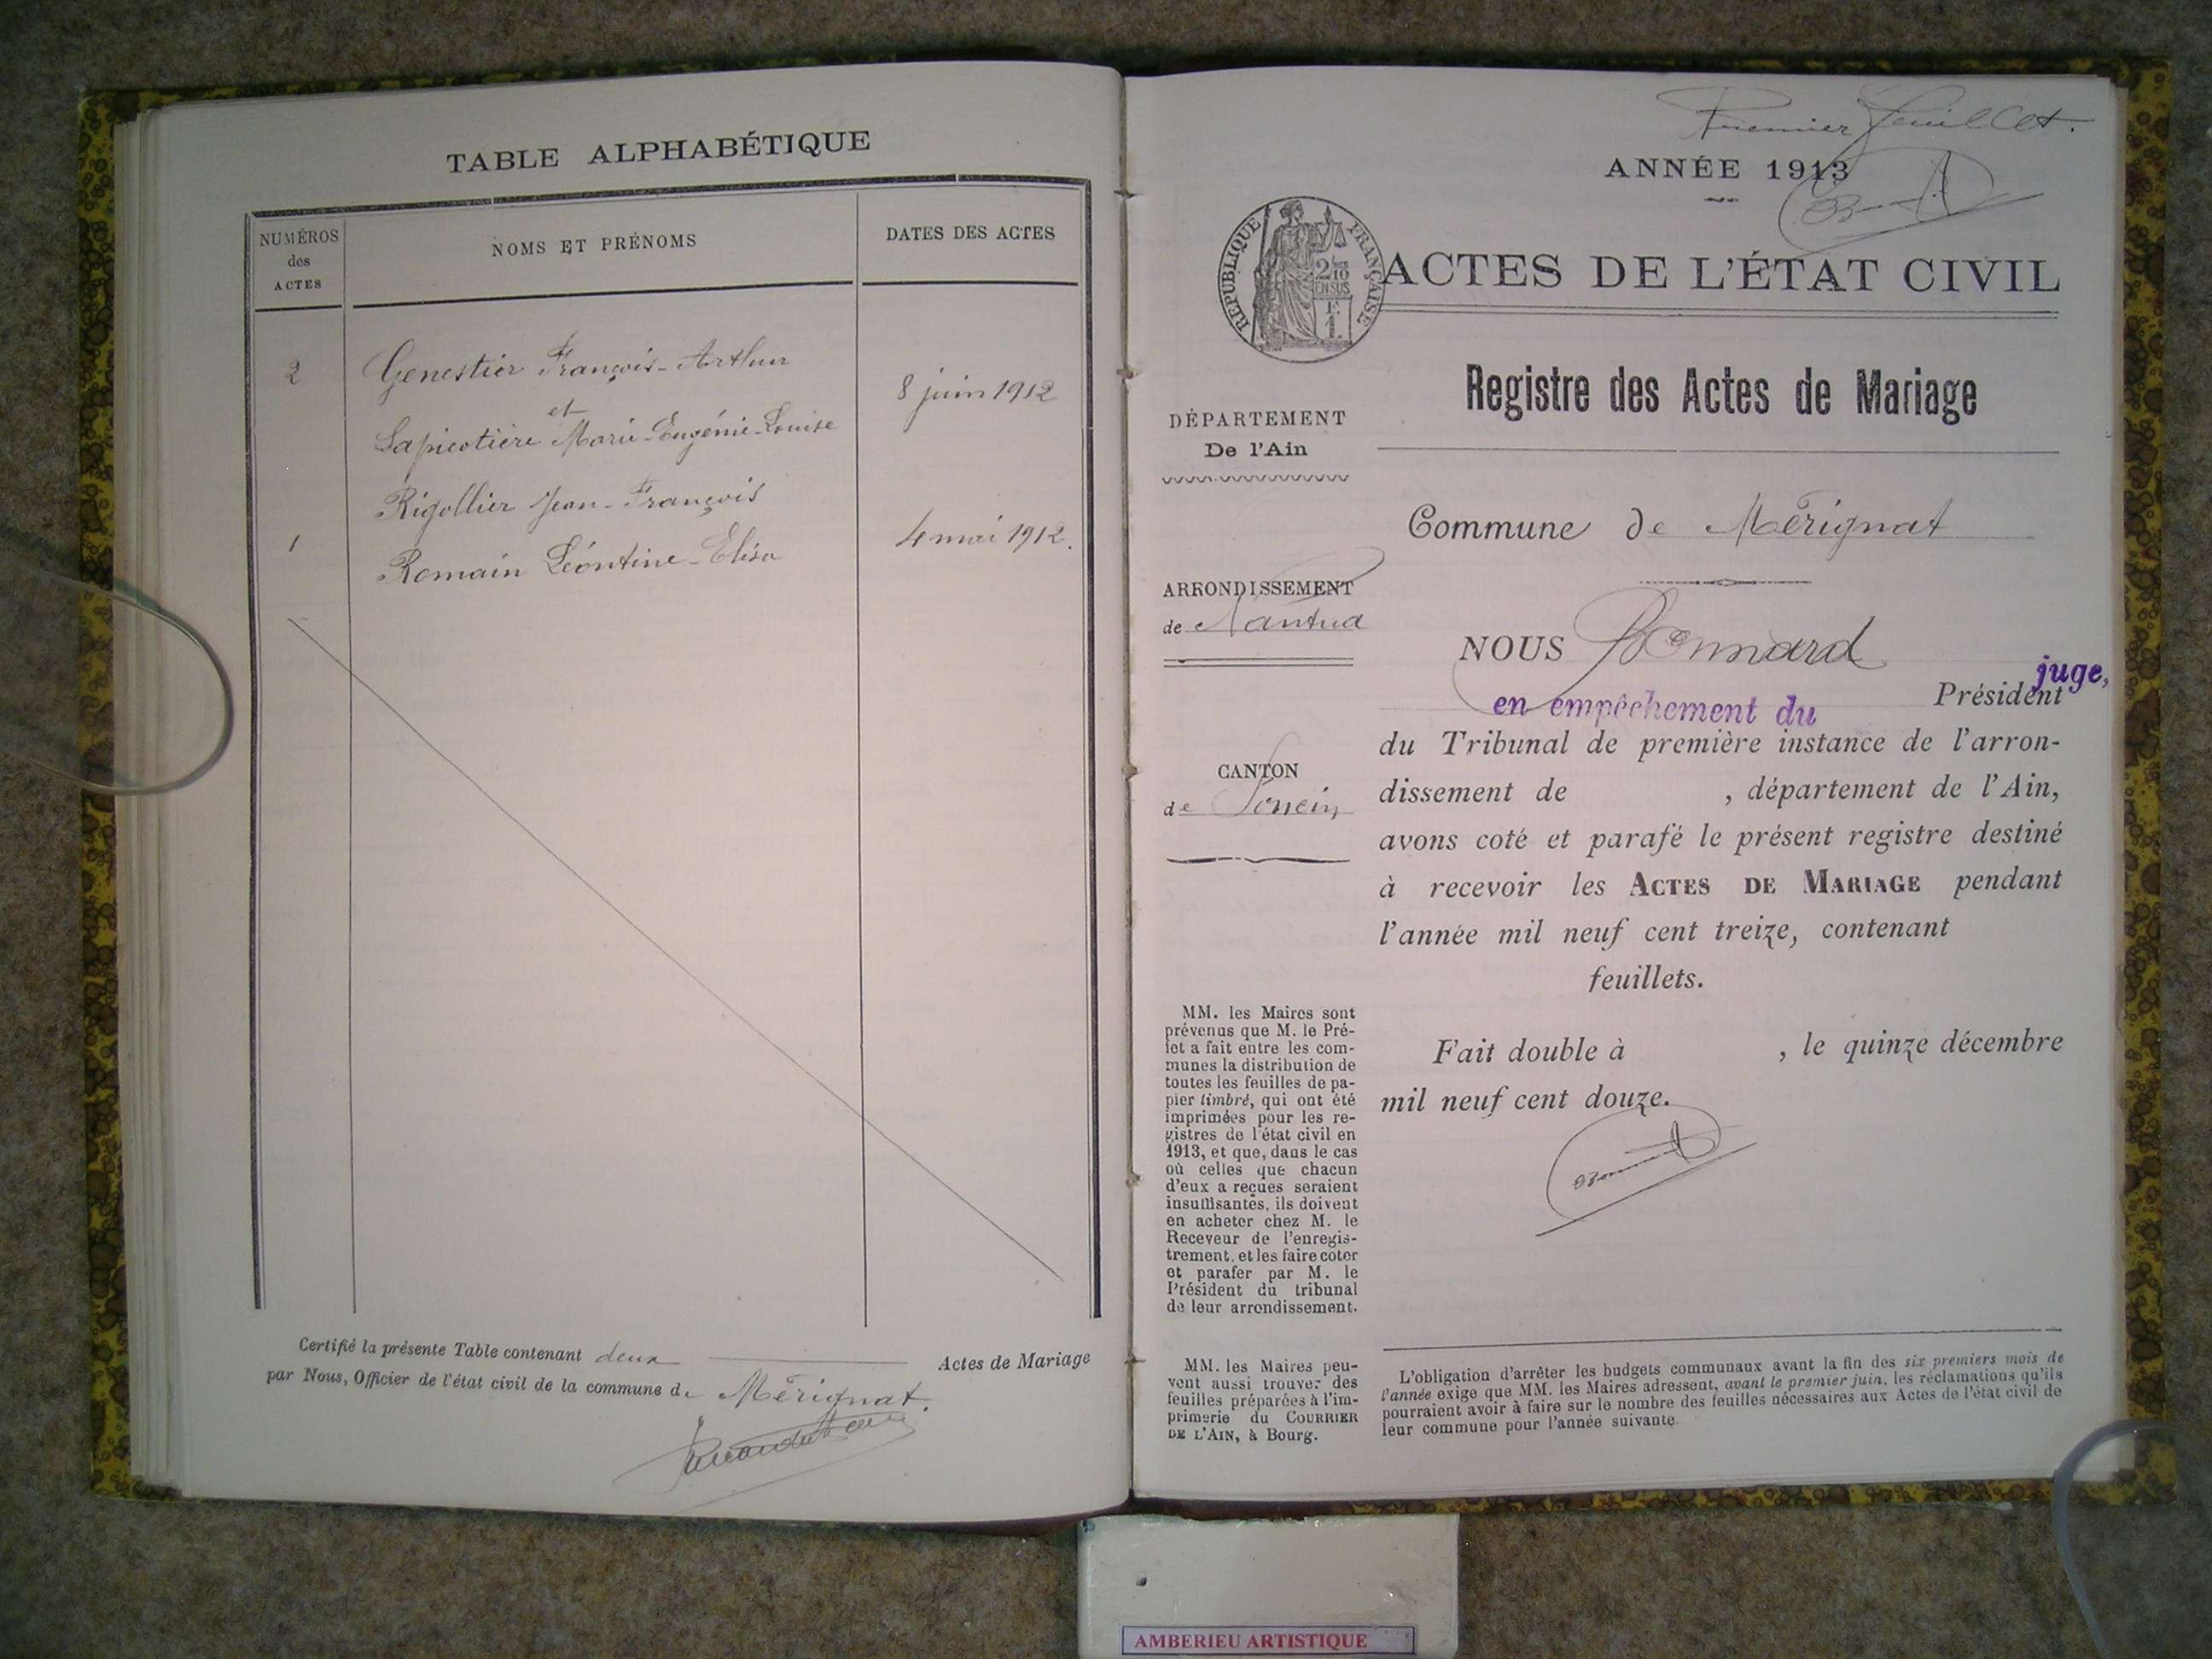 TABLE ALPHABÉTIQUE
NUMÉROS
des
ACTES
NOMS ET PRÉNOMS
DATES DES ACTES
2
Genestier François-Arthur
et
Lapicotière Marie-Eugénie-Louise
8 juin 1912
Rigollier Jean-François
1
4 mai 1912.
Romain Léontine-Elisa
Certifié la présente Table contenant deux Actes de Mariage
par Nous, Officier de l'état civil de la commune de Mérignat.
Premier feuillet.
ANNÉE 1913
RÉPUBLIQUE FRANÇAISE
2/10
EN SUS
1 F.
ACTES DE L'ÉTAT CIVIL
Registre des Actes de Mariage
DÉPARTEMENT
De l'Ain
Commune de Mérignat
ARRONDISSEMENT
de Nantua
CANTON
de Poncin
NOUS Bonnard
juge,
en empêchement du Président
du Tribunal de première instance de l'arron-
dissement de , département de l'Ain,
avons coté et parafé le présent registre destiné
à recevoir les ACTES DE MARIAGE pendant
l'année mil neuf cent treize, contenant
feuillets.
Fait double à , le quinze décembre
mil neuf cent douze.
MM. les Maires sont
prévenus que M. le Pré-
fet a fait entre les com-
munes la distribution de
toutes les feuilles de pa-
pier timbré, qui ont été
imprimées pour les re-
gistres de l'état civil en
1913, et que, dans le cas
où celles que chacun
d'eux a reçues seraient
insuffisantes, ils doivent
en acheter chez M. le
Receveur de l'enregis-
trement, et les faire coter
et parafer par M. le
Président du tribunal
de leur arrondissement.
MM. les Maires peu-
vent aussi trouver des
feuilles préparées à l'im-
primerie du COURRIER
DE L'AIN, à Bourg.
L'obligation d'arrêter les budgets communaux avant la fin des six premiers mois de
l'année exige que MM. les Maires adressent, avant le premier juin, les réclamations qu'ils
pourraient avoir à faire sur le nombre des feuilles nécessaires aux Actes de l'état civil de
leur commune pour l'année suivante.
AMBERIEU ARTISTIQUE